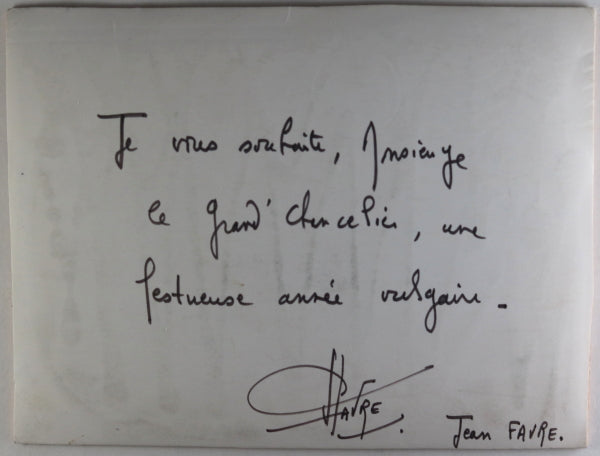 Je vous souhaite, Monsieuye
le Grand' Chancelier, une
fastueuse année vulgaire.
FAVRE.
Jean FAVRE.